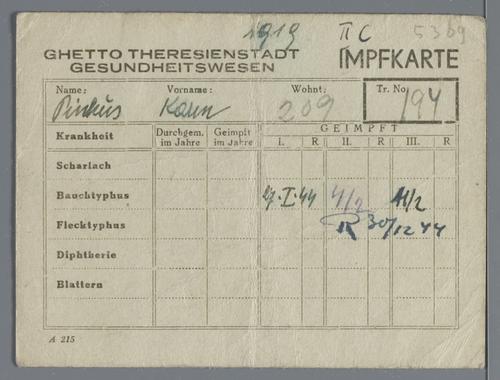 1919 II C 5369
GHETTO THERESIENSTADT IMPFKARTE
GESUNDHEITSWESEN
Name: Vorname: Wohnt: Tr. No
Pinkus Kann 209 194
Krankheit Durchgem. im Jahre Geimpft im Jahre GEIMPFT
I. R II. R III. R
Scharlach
Bauchtyphus I.44 4/2 11/2
Flecktyphus R 30/12 44
Diphtherie
Blattern
A 215